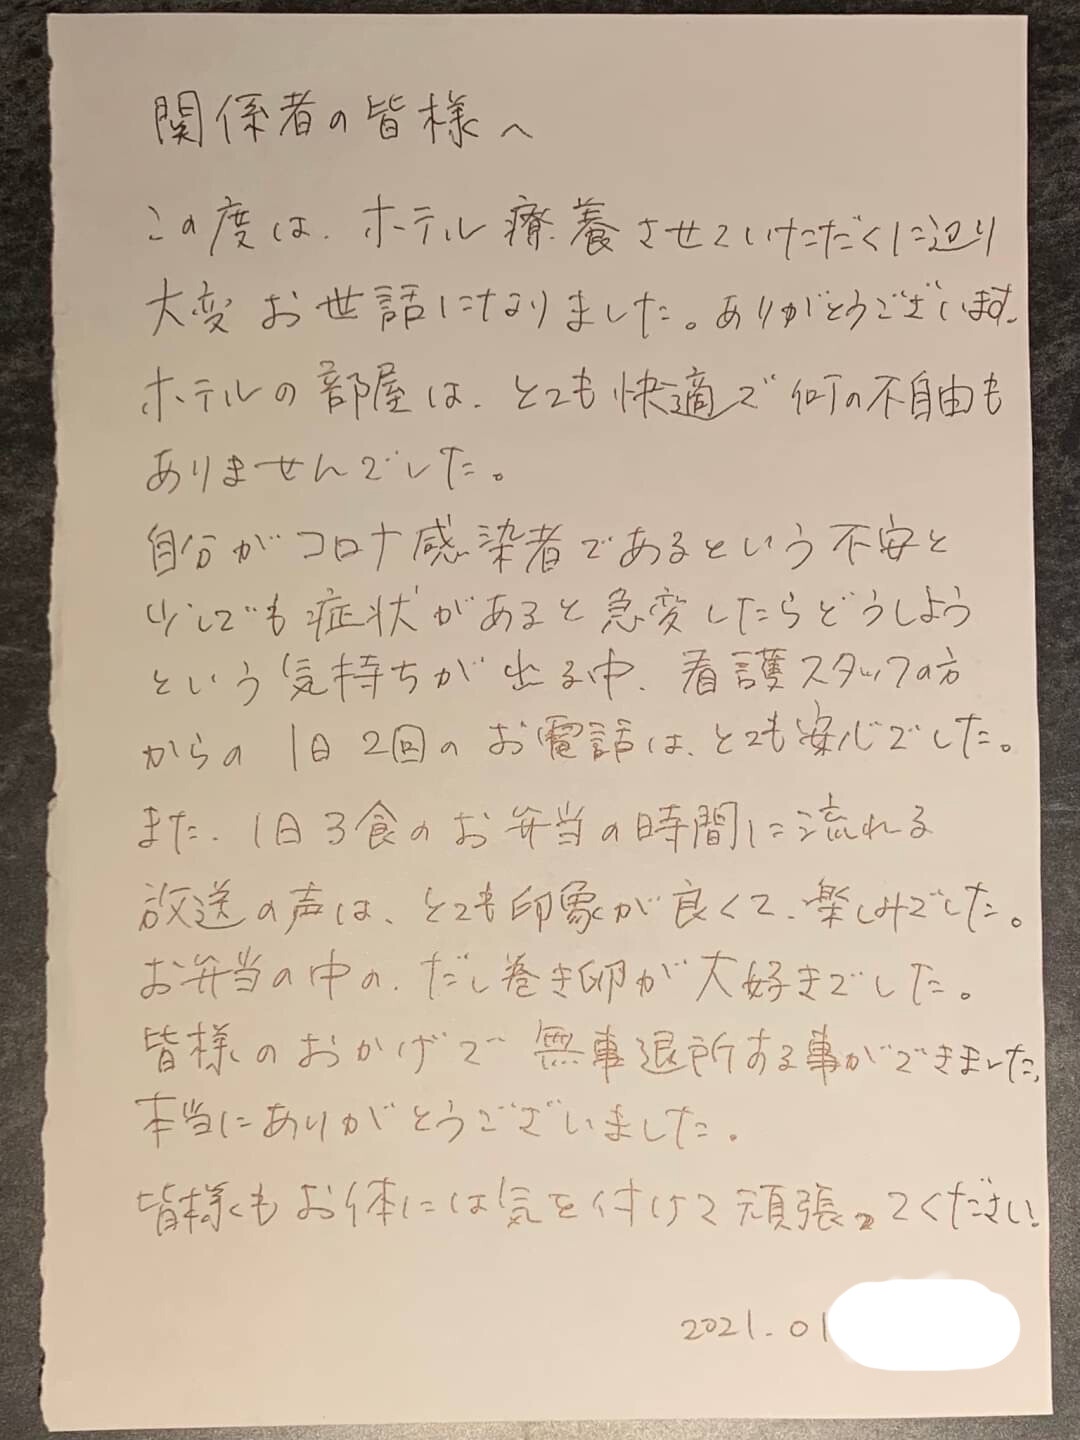 関係者の皆様へ
この度は、ホテル療養させていただくに辺り
大変お世話になりました。ありがとうございます。
ホテルの部屋は、とても快適で何の不自由も
ありませんでした。
自分がコロナ感染者であるという不安と
少しでも症状があると急変したらどうしよう
という気持ちが出る中、看護スタッフの方
からの1日2回のお電話は、とても安心でした。
また、1日3食のお弁当の時間に流れる
放送の声は、とても印象が良くて、楽しみでした。
お弁当の中の、だし巻き卵が大好きでした。
皆様のおかげで無事退所する事ができました。
本当にありがとうございました。
皆様もお体には気を付けて頑張ってください。
2021.01